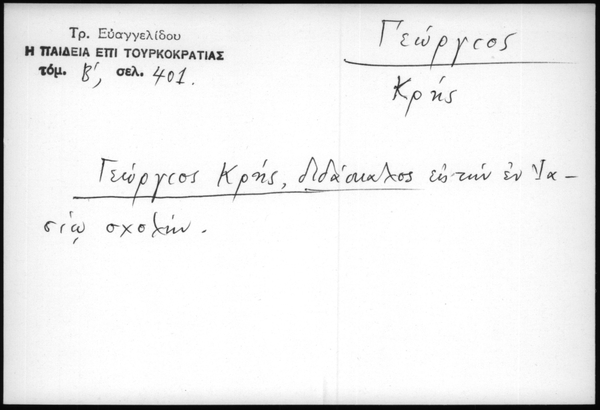 Τρ. Εὐαγγελίδου
Η ΠΑΙΔΕΙΑ ΕΠΙ ΤΟΥΡΚΟΚΡΑΤΙΑΣ
τόμ. Β', σελ. 401.
Γεώργιος
Κρής
Γεώργιος Κρής, διδάσκαλος εἰς τὴν ἐν Ἰα-
σίῳ σχολήν.